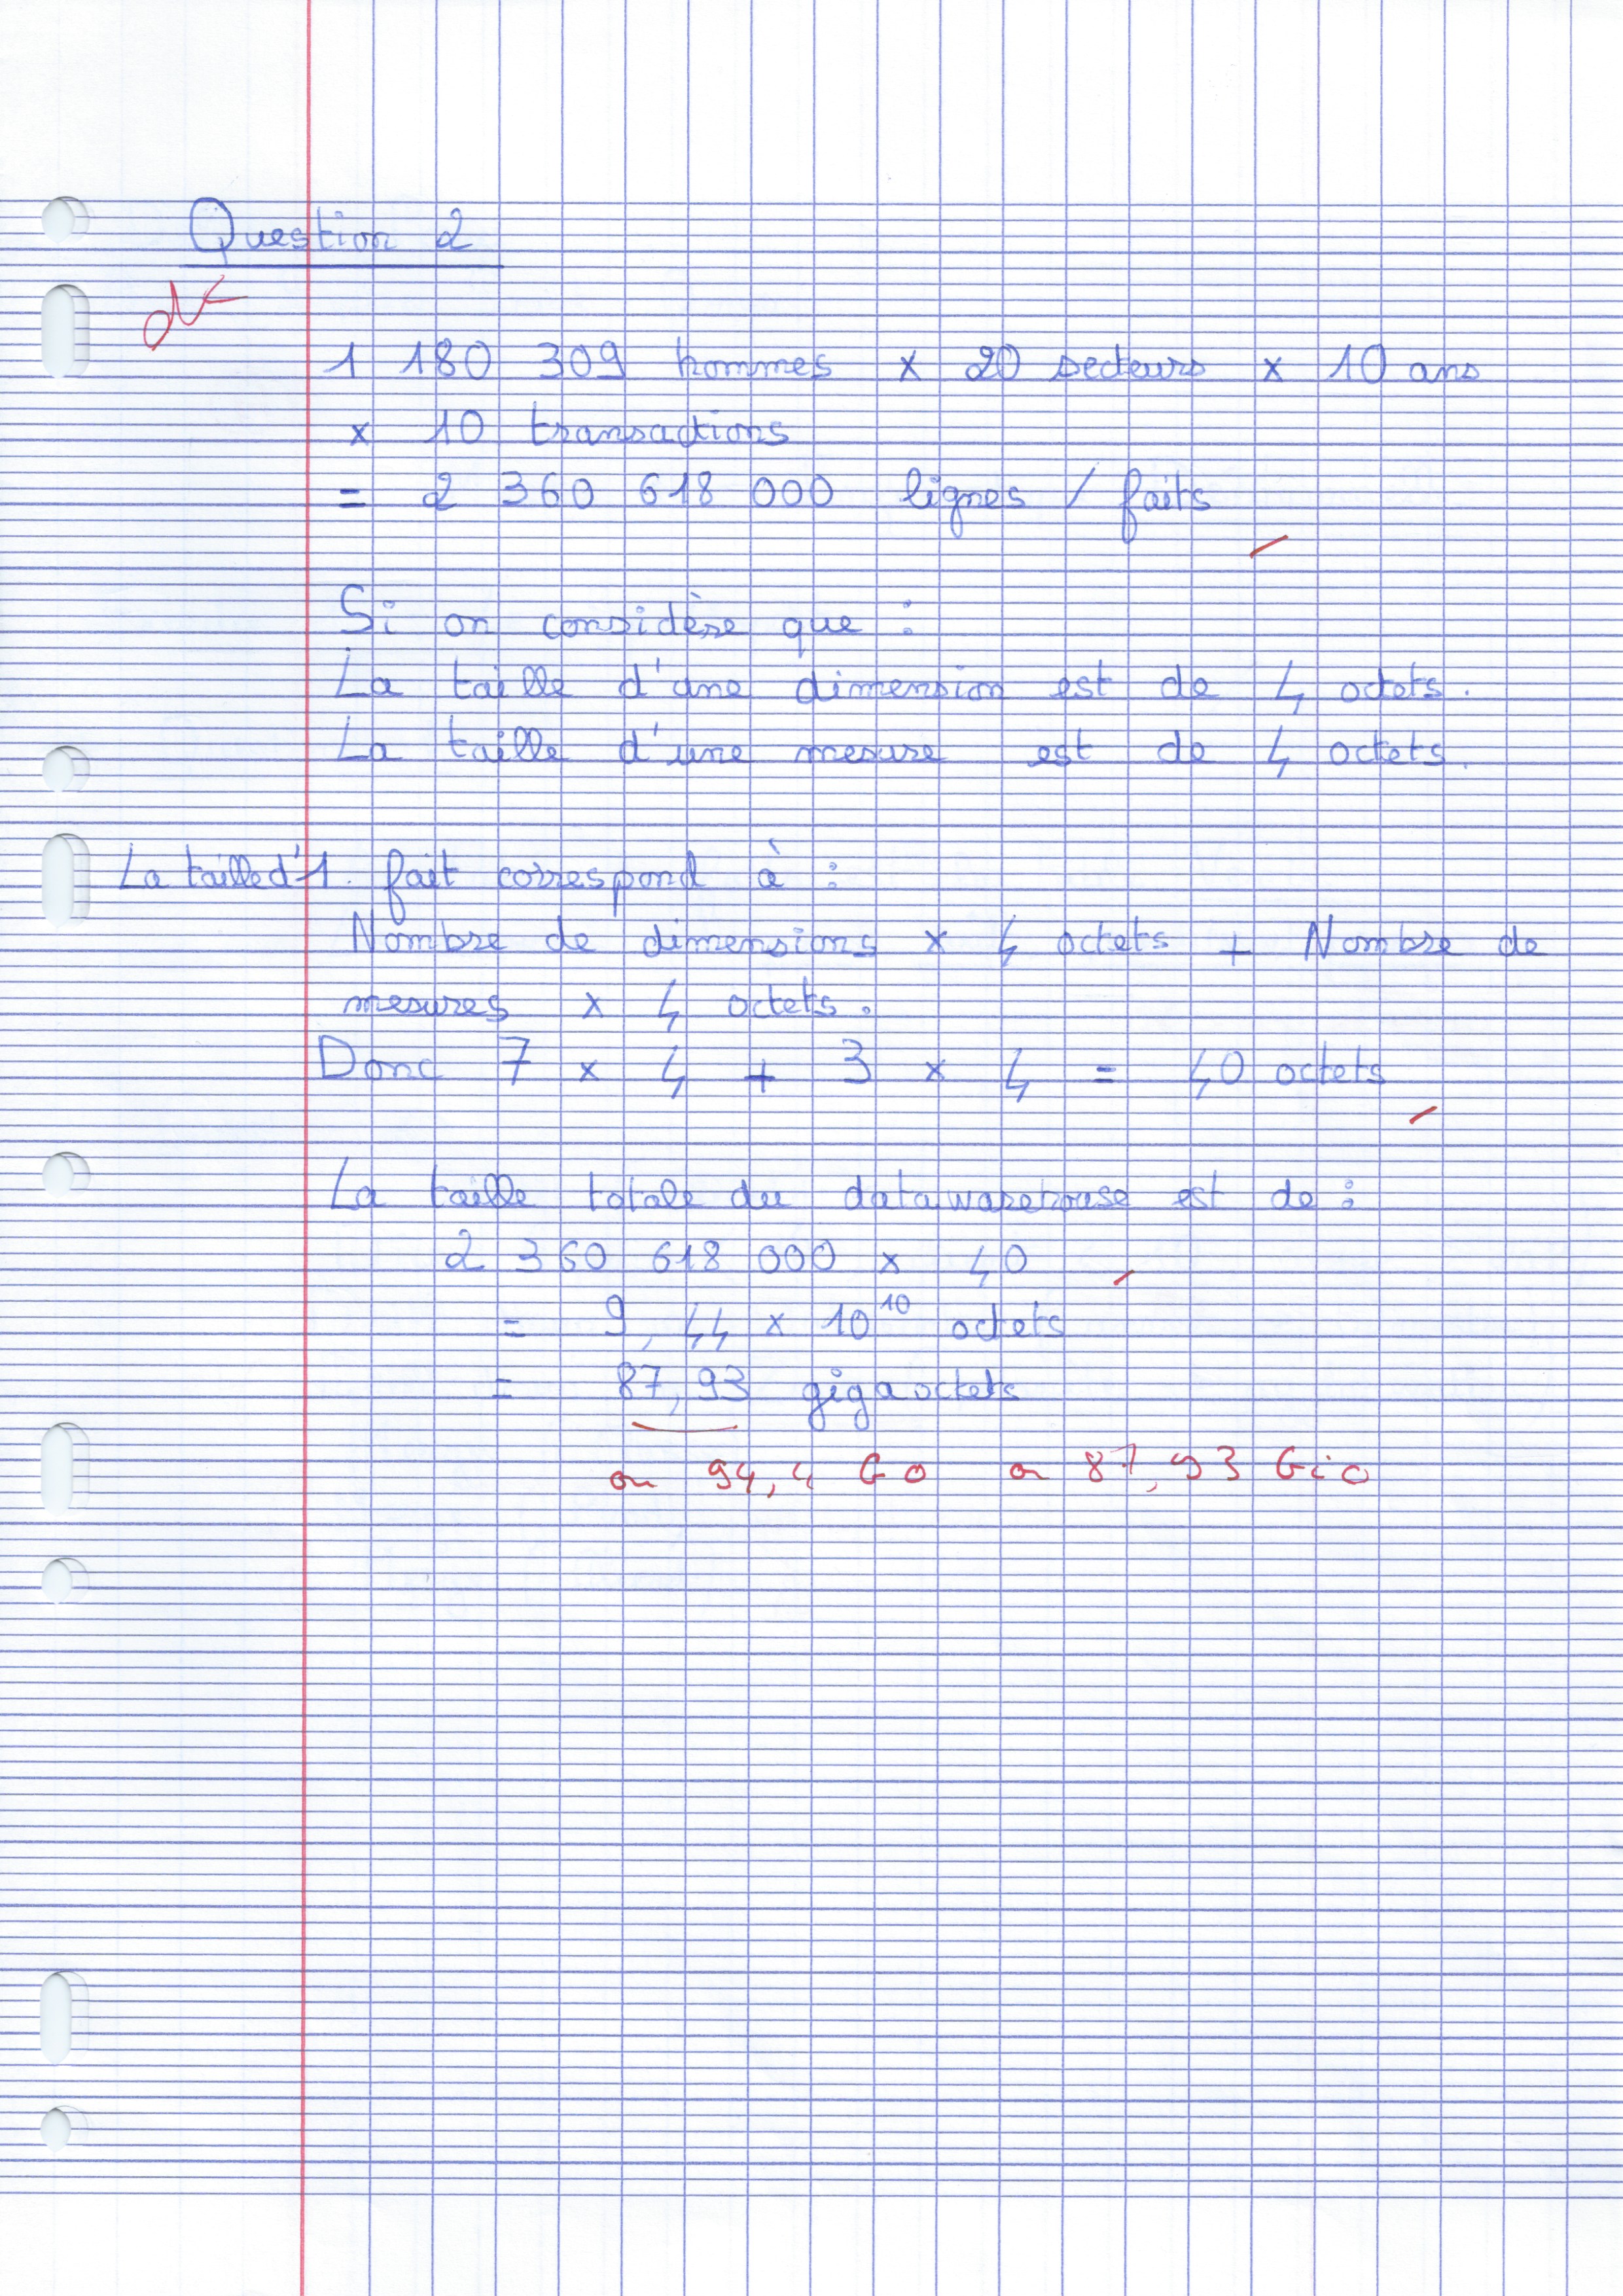 Question 2
1 180 309 hommes x 20 secteurs x 10 ans
x 10 transactions
= 2 360 618 000 lignes / faits
Si on considère que :
La taille d'une dimension est de 4 octets.
La taille d'une mesure est de 4 octets.
La taille d'1 fait correspond à :
Nombre de dimensions x 4 octets + Nombre de
mesures x 4 octets.
Donc 7 x 4 + 3 x 4 = 40 octets
La taille totale du datawarehouse est de :
2 360 618 000 x 40
= 9,44 x 10¹⁰ octets
= 87,93 gigaoctets
ou 94,4 Go ou 87,93 Gio